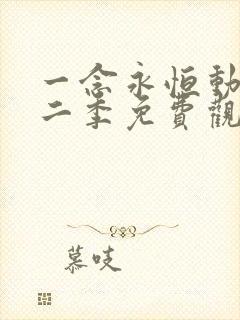 一念永恒動
二季免費觀
慕吱